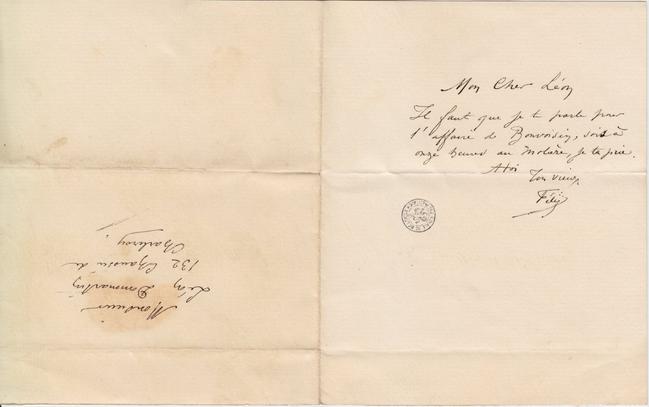 Mon Cher Léon
Il faut que je te parle pour
l'affaire de Bonvoisin, sois à
onze heures au Molière, je te prie.
Ton vieux
Monsieur
Léon Dommartin
132 Chaussée de
Charleroy.